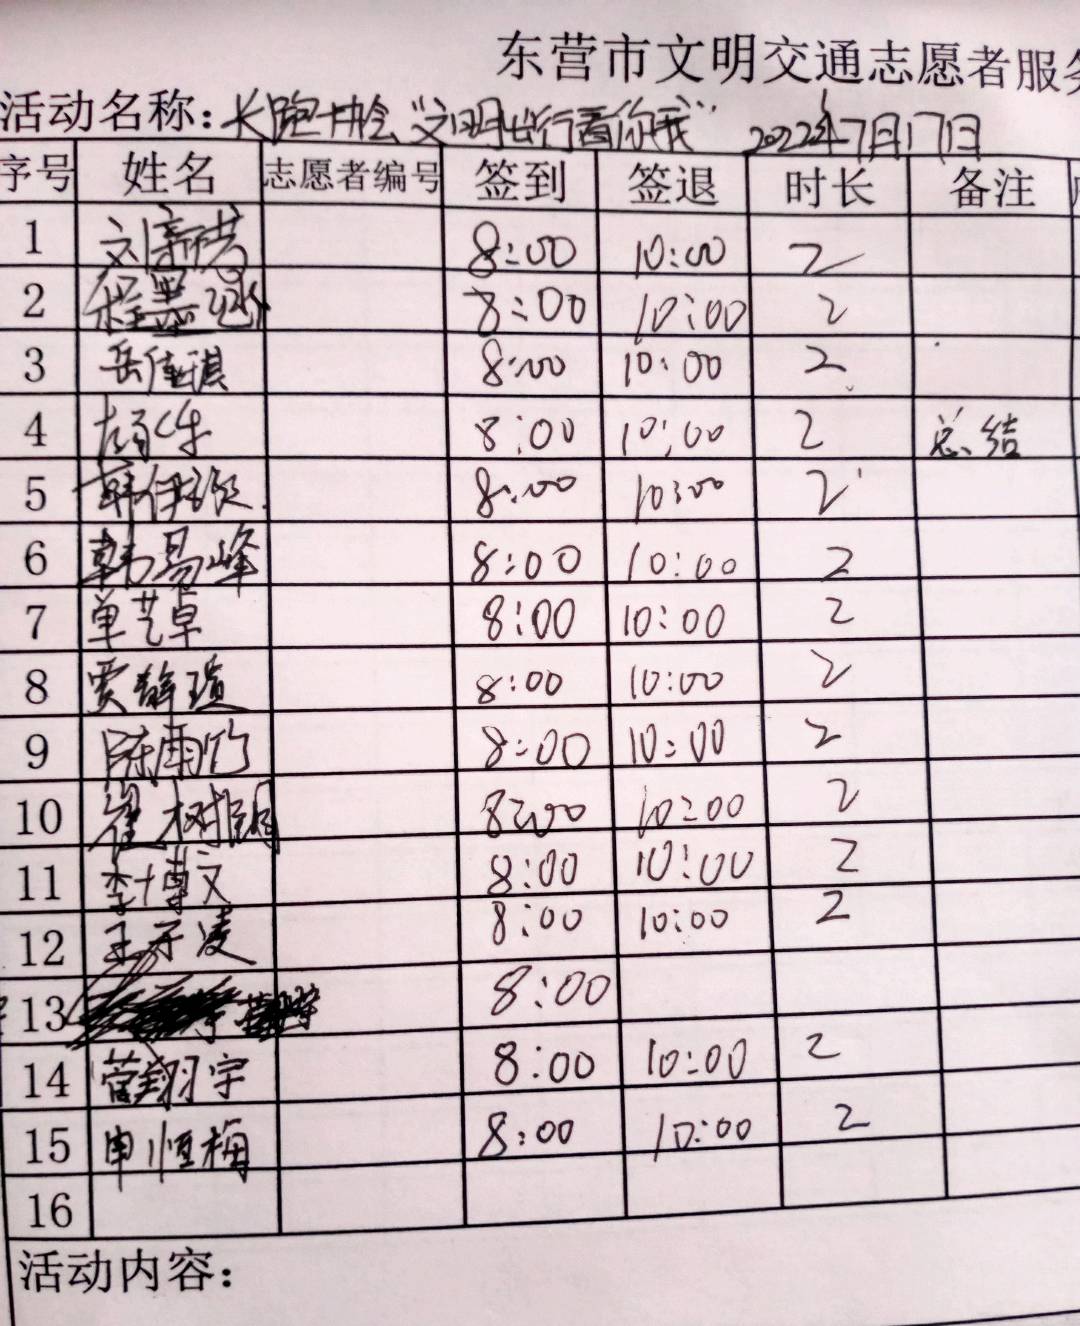 东营市文明交通志愿者服务
活动名称：长跑协会“文明出行看你我” 2022年7月17日
序号 姓名 志愿者编号 签到 签退 时长 备注
1 8:00 10:00 2
2 8:00 10:00 2
3 岳倩琪 8:00 10:00 2
4 8:00 10:00 2 总结
5 韩伊 8:00 10:00 2
6 韩易峰 8:00 10:00 2
7 单艺卓 8:00 10:00 2
8 贾静瑄 8:00 10:00 2
9 陈雨竹 8:00 10:00 2
10 崔树 8:00 10:00 2
11 李博文 8:00 10:00 2
12 王子凌 8:00 10:00 2
13 8:00
14 菅翔宇 8:00 10:00 2
15 申恒梅 8:00 10:00 2
16
活动内容：